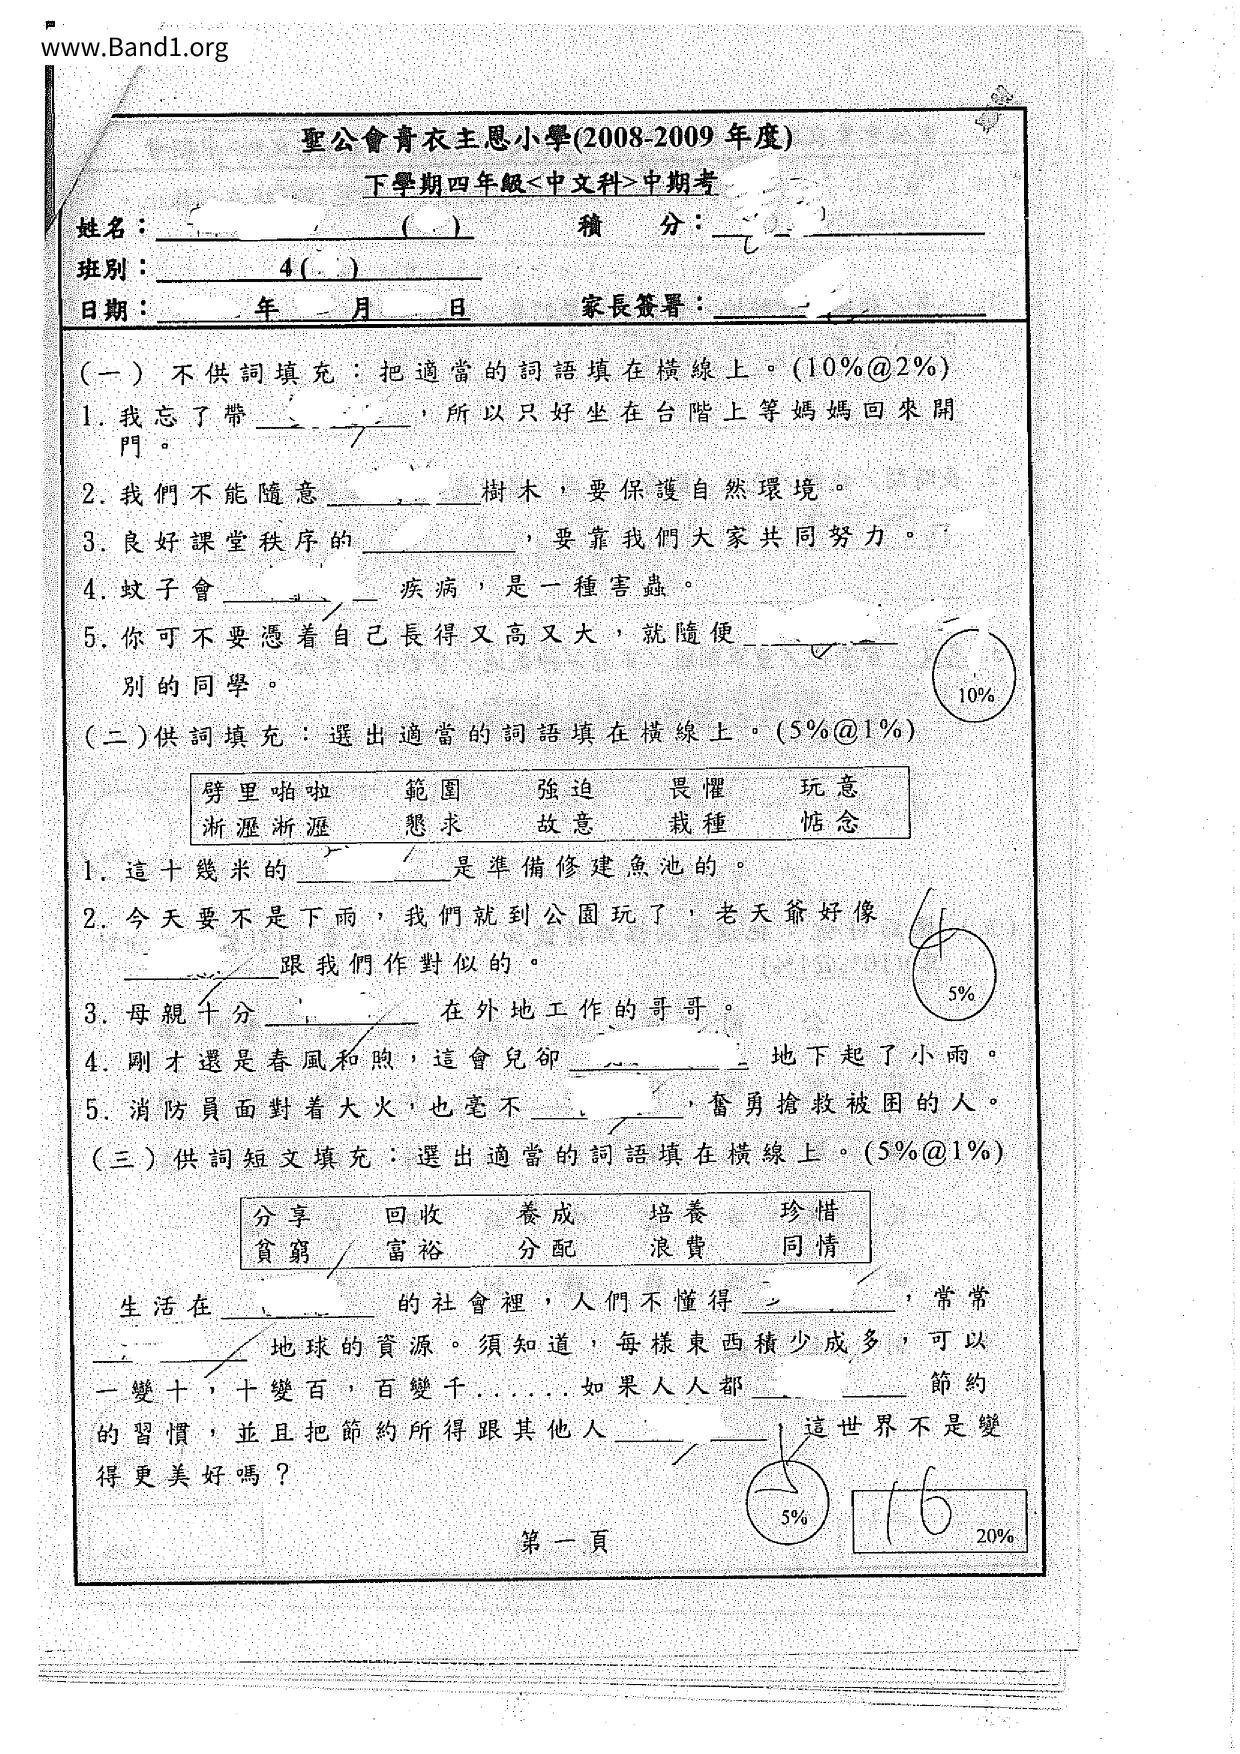 www.Band1.org
聖公會青衣主恩小學(2008-2009 年度)
下學期四年級<中文科>中期考
姓名： ( ) 積 分：
班別： 4 ( )
日期： 年 月 日 家長簽署：
(一) 不供詞填充：把適當的詞語填在橫線上。(10%@2%)
1. 我忘了帶 ，所以只好坐在台階上等媽媽回來開
門。
2. 我們不能隨意 樹木，要保護自然環境。
3. 良好課堂秩序的 ，要靠我們大家共同努力。
4. 蚊子會 疾病，是一種害蟲。
5. 你可不要憑着自己長得又高又大，就隨便
別的同學。
10%
(二)供詞填充：選出適當的詞語填在橫線上。(5%@1%)
劈里啪啦 範圍 強迫 畏懼 玩意
淅瀝淅瀝 懇求 故意 栽種 惦念
1. 這十幾米的 是準備修建魚池的。
2. 今天要不是下雨，我們就到公園玩了，老天爺好像
跟我們作對似的。
4
5%
3. 母親十分 在外地工作的哥哥。
4. 剛才還是春風和煦，這會兒卻 地下起了小雨。
5. 消防員面對着大火，也毫不 ，奮勇搶救被困的人。
(三) 供詞短文填充：選出適當的詞語填在橫線上。(5%@1%)
分享 回收 養成 培養 珍惜
貧窮 富裕 分配 浪費 同情
生活在 的社會裡，人們不懂得 ，常常
地球的資源。須知道，每樣東西積少成多，可以
一變十，十變百，百變千......如果人人都 節約
的習慣，並且把節約所得跟其他人 ，這世界不是變
得更美好嗎？
5%
16
20%
第一頁